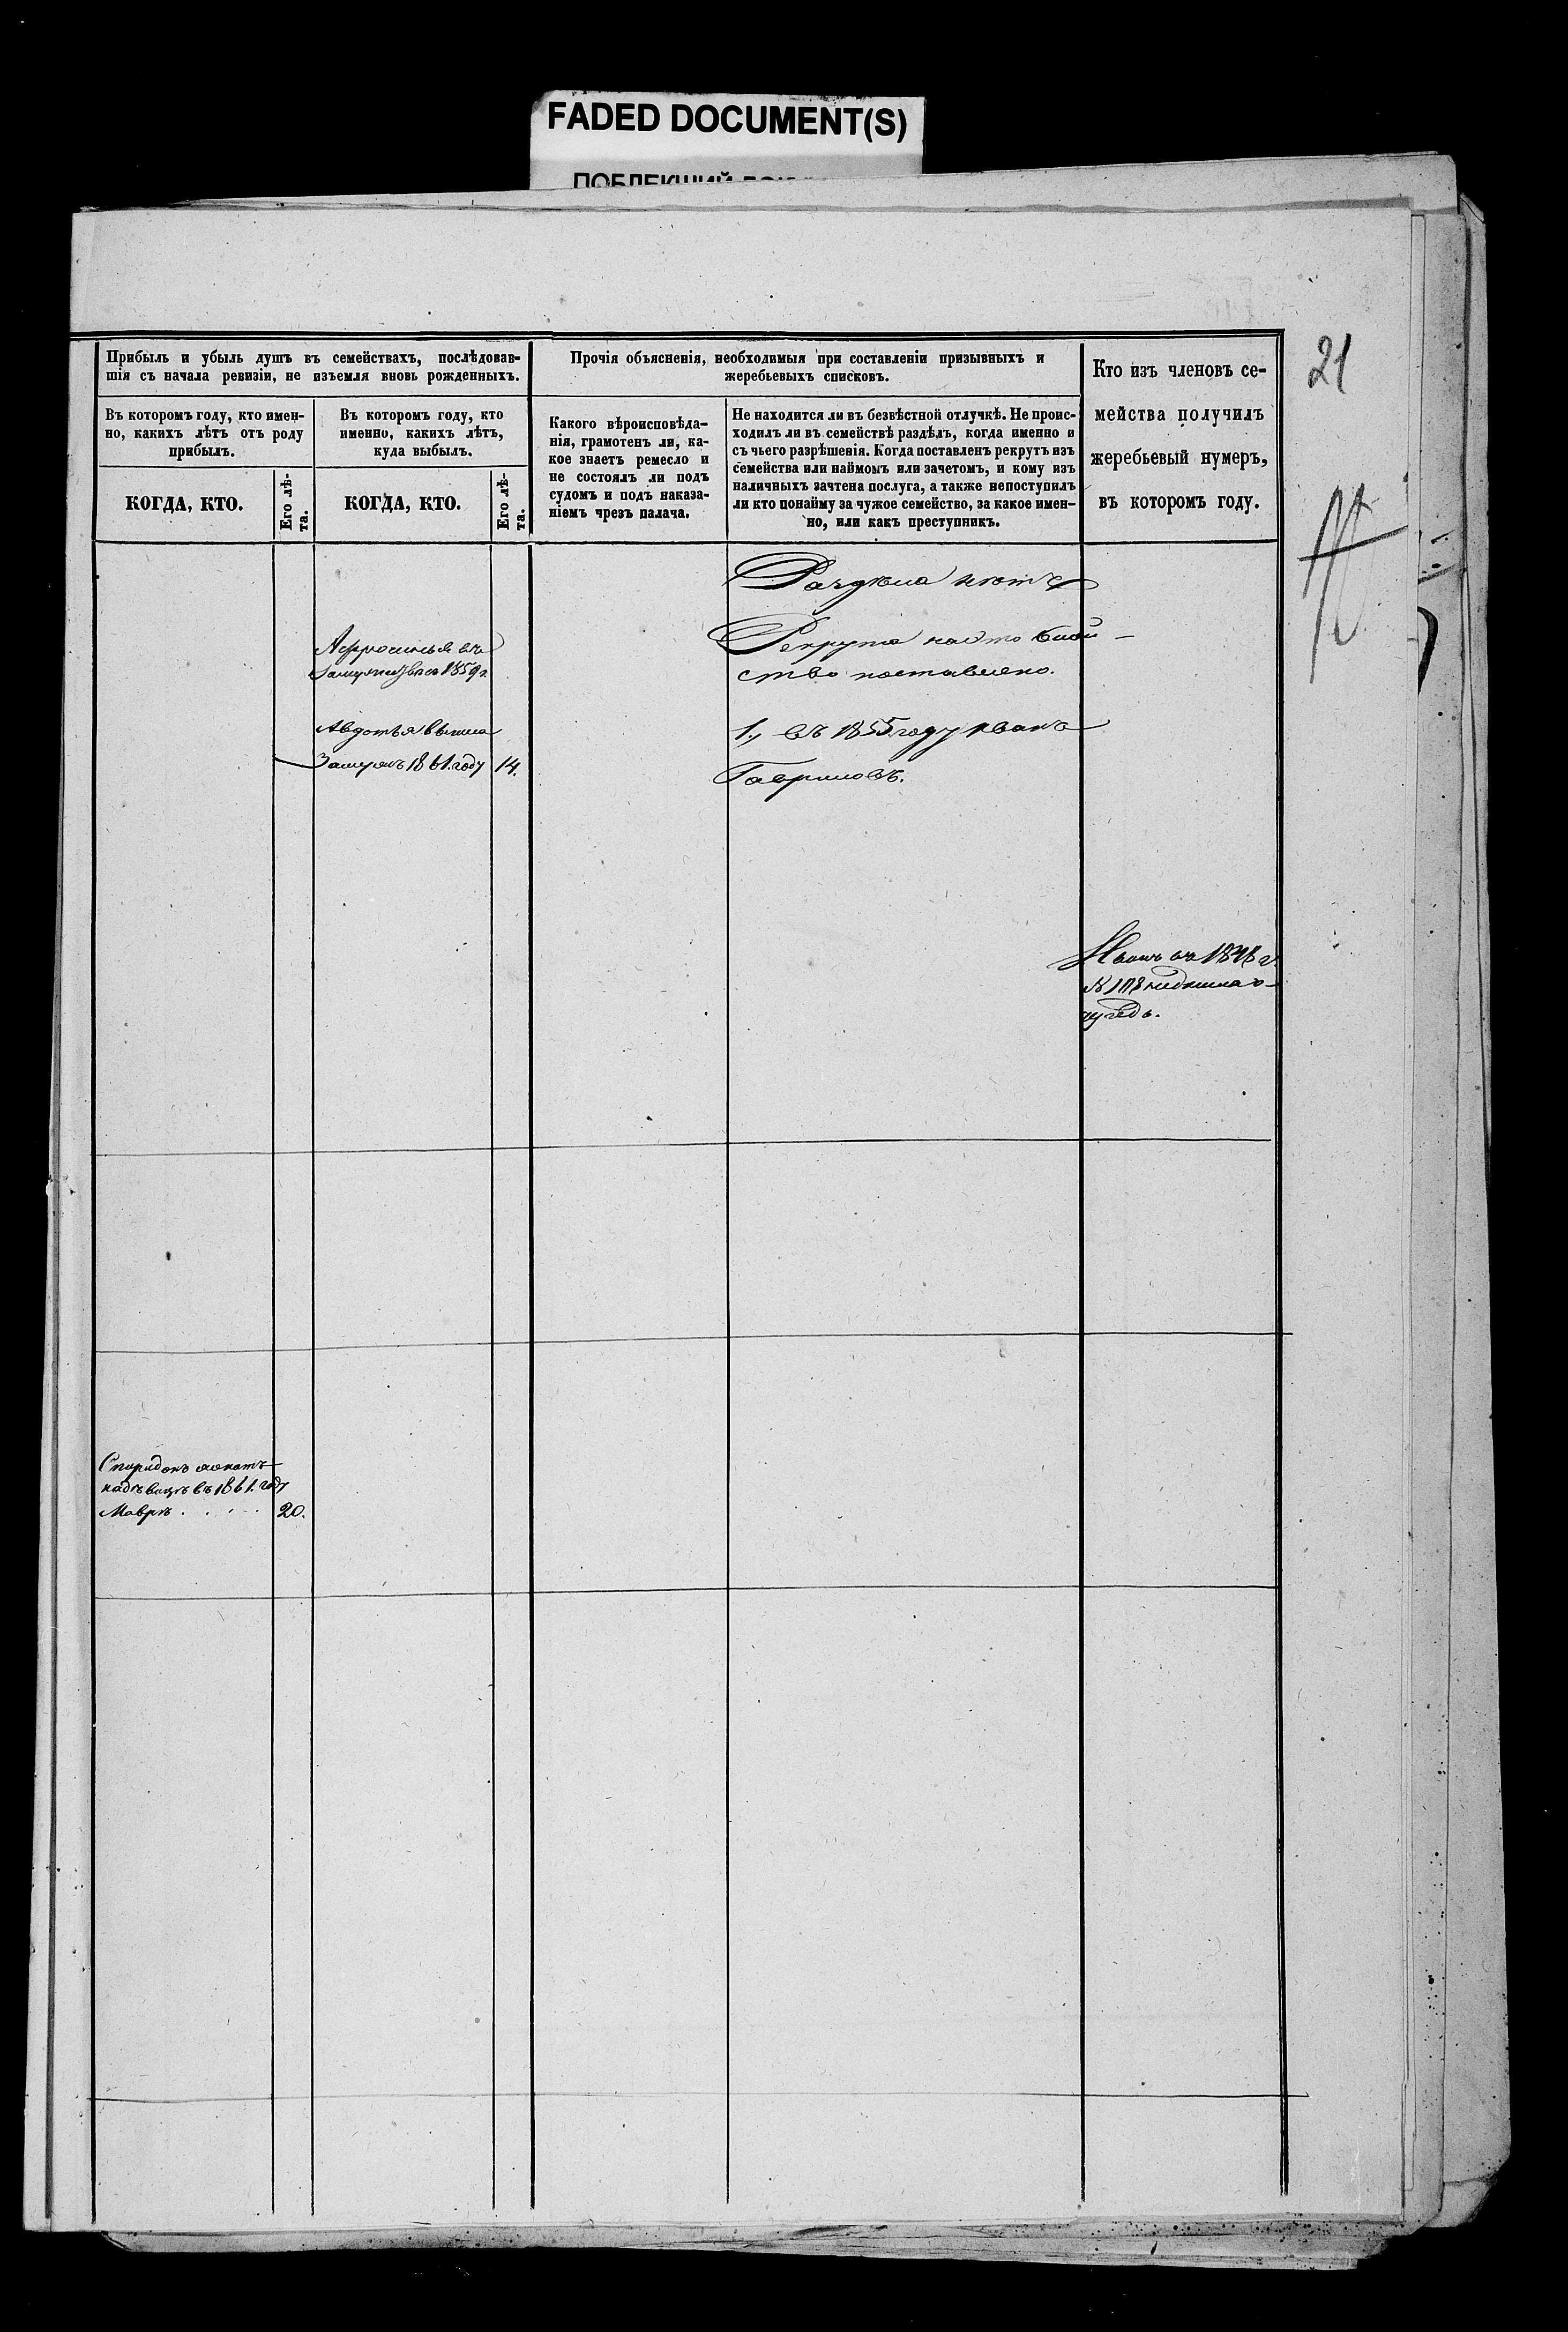 FADED DOCUMENT(S)
ПОБЛЕКШИЙ
21
Прибыль и убыль душъ въ семействахъ, послѣдовав-
шія съ начала ревизіи, не изъемля вновь рожденныхъ.
Въ которомъ году, кто имен-
но, какихъ лѣтъ отъ роду
прибылъ.
КОГДА, КТО.
Его лѣ-
та.
Въ которомъ году, кто
именно, какихъ лѣтъ,
куда выбылъ.
КОГДА, КТО.
Его лѣ-
та.
Прочія объясненія, необходимыя при составленіи призывныхъ и
жеребьевыхъ списковъ.
Какого вѣроисповѣда-
нія, грамотенъ ли, ка-
кое знаетъ ремесло и
не состоялъ ли подъ
судомъ и подъ наказа-
ніемъ чрезъ палача.
Не находится ли въ безвѣстной отлучкѣ. Не проис-
ходилъ ли въ семействѣ раздѣлъ, когда именно и
съ чьего разрѣшенія. Когда поставленъ рекрутъ изъ
семейства или наймомъ или зачетомъ, и кому изъ
наличныхъ зачтена послуга, а также непоступилъ
ли кто понайму за чужое семейство, за какое имен-
но, или какъ преступникъ.
Кто изъ членовъ се-
мейства получилъ
жеребьевый нумеръ,
въ которомъ году.
Раздѣла нѣтъ
Афросинья въ
Замужевъ 1859 г.
Рекрута
ство поставлено.
Авдотья вышла
Замужъ 1861. году 14.
1., въ 1855 году Иванъ
Гавриловъ.
Иванъ въ 18
№
Спиридонъ женатъ
на дѣвицѣ въ 1861. году
Маврѣ . . . . 20.